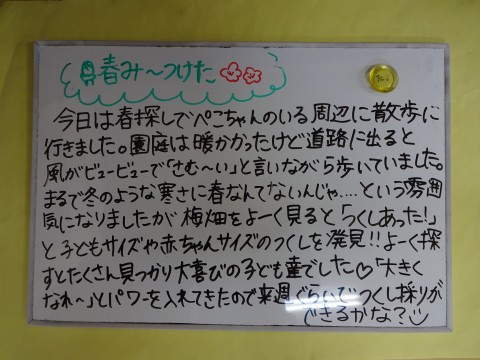 春み〜つけた
今日は春探しでぺこちゃんのいる周辺に散歩に
行きました。園庭は暖かかったけど道路に出ると
風がビュービューで「さむ〜い」と言いながら歩いていました。
まるで冬のような寒さに春なんてないんじゃ....という雰囲
気になりましたが梅畑をよーく見ると「つくしあった!」
と子どもサイズや赤ちゃんサイズのつくしを発見!!よーく探
すとたくさん見つかり大喜びの子ども達でした♡「大きく
なれ〜」とパワーを入れてきたので来週ぐらいでつくし採りが
できるかな?